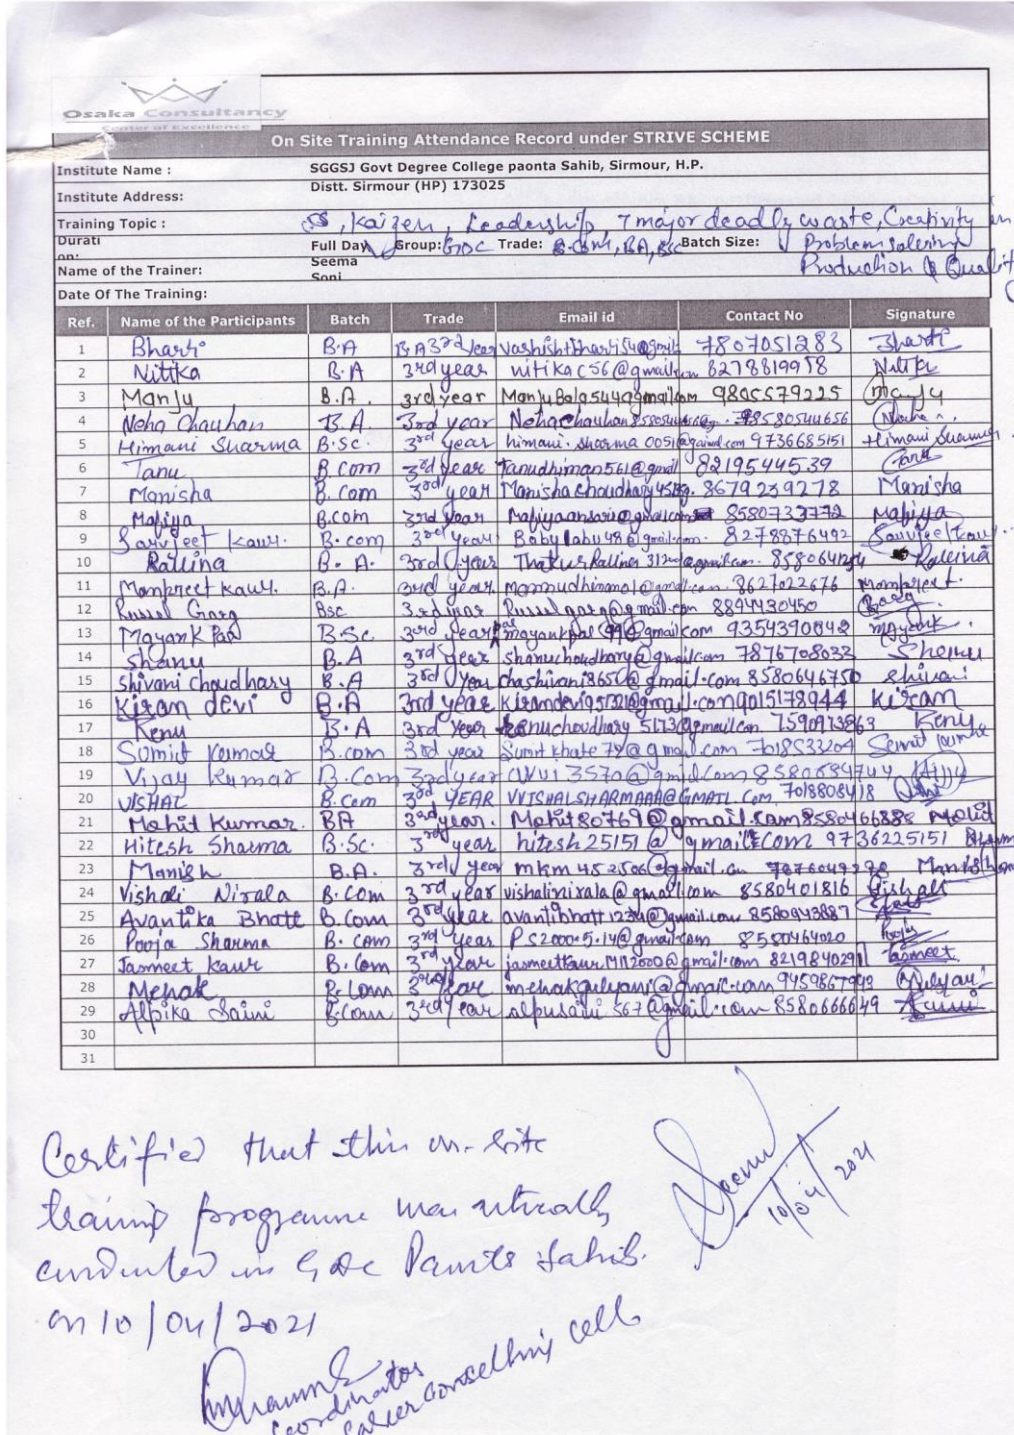 Osaka Consultancy
Center of Excellence
On Site Training Attendance Record under STRIVE SCHEME
Institute Name : SGGSJ Govt Degree College paonta Sahib, Sirmour, H.P.
Institute Address: Distt. Sirmour (HP) 173025
Training Topic : 5S, Kaizen, Leadership, 7 major deadly waste, Creativity in
Durati on: Full Day Group: GDC Trade: B.Com, BA, BSc Batch Size: Problem solering
Name of the Trainer: Seema Soni Production & Quality
Date Of The Training:
Ref. Name of the Participants Batch Trade Email id Contact No Signature
1 Bharti B.A B.A 3rd year 7807051283 Bharti
2 Nitika B.A 3rd year nitikac56@gmail.com 8278819958 Nitika
3 Manju B.A. 3rd year ManjuBala544@gmail.com 9805579225 Manju
4 Neha Chauhan B.A. 3rd year 8580544656 Neha
5 Himani Sharma B.Sc. 3rd year himani.sharma0051@gmail.com 9736685151 Himani Sharma
6 Tanu B.Com 3rd year tanudhiman561@gmail 8219544539 Tanu
7 Manisha B.Com 3rd year 8679239278 Manisha
8 Mafiya B.com 3rd year Mafiyaansari@gmail.com 8580733772 Mafiya
9 Sarvjeet Kaur. B.com 3rd year Babylabu48@gmail.com. 8278876492 Sarvjeet Kaur
10 Rallina B.A. 3rd year
11 Manpreet kaur. B.A. 3rd year. 8627022676 Manpreet.
12 Russel Garg Bsc 3rd year Russelgarg@gmail.com 8894430450 Garg
13 Mayank Pal B.Sc. 3rd year mayankpal99@gmail.com 9354390842 Mayank.
14 Shanu B.A 3rd year shanuchoudhary@gmail.com 7876708032 Shanu
15 Shivani choudhary B.A 3rd year chashivani8650@gmail.com 8580646750 Shivani
16 Kiran devi B.A 3rd year kirandevi9572@gmail.com 9015178944 Kiran
17 Renu B.A 3rd year renuchoudhary5173@gmail.com 7590973863 Renu
18 Sumit Kumar B.com 3rd year 7018533204 Sumit Kumar
19 Vijay Kumar B.Com 3rd year 8580694744 Vijay
20 VISHAL B.Com 3rd YEAR VVISHALSHARMAAA@GMAIL.Com 7018808418
21 Mohit Kumar. BA 3rd year. Mohit80769@gmail.com 8580466888 Mohit
22 Hitesh Sharma B.Sc. 3rd year hitesh25151@gmail.com 9736225151
23 Manish B.A. 3rd year mkm452506@gmail.com Manish
24 Vishali Nirala B.Com 3rd year vishalinirala@gmail.com 8580401816 Vishali
25 Avantika Bhatt B.Com 3rd year avantibhatt1234@gmail.com 8580943887
26 Pooja Sharma B.com 3rd year PS2000.5.14@gmail.com 8580464020 Pooja
27 Jasmeet kaur B.Com 3rd year jasmeetkaur1712000@gmail.com 8219840291 Jasmeet
28 Mehak B.Com 3rd year mehakgulyani@gmail.com 9459867943 Gulyani
29 Alpika Saini B.Com 3rd year alpusaini567@gmail.com 8580666649 Saini
30
31
Certified that this on-site
training programme was actually
conducted in GDC Paonta Sahib.
on 10/04/2021
Seema
10/04/2021
Coordinator
Career Conselling cell